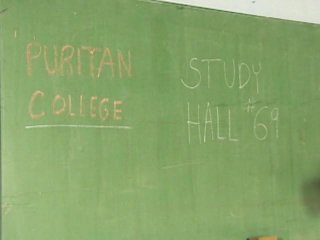 PURITAN
COLLEGE
STUDY
HALL #69